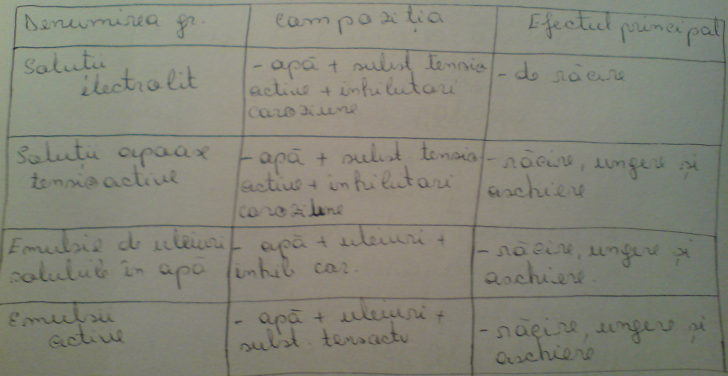 Denumirea gr.
Compoziția
Efectul principal
Soluții
electrolit
- apă + subst tensio
active + inhibitori
coroziune
- de răcire
Soluții apoase
tensioactive
- apă + subst tensio
active + inhibitori
coroziune
- răcire, ungere și
aschiere
Emulsie de uleiuri
solubile în apă
- apă + uleiuri +
inhib cor.
- răcire, ungere și
aschiere.
Emulsii
active
- apă + uleiuri +
subst. tensactiv
- răcire, ungere și
aschiere